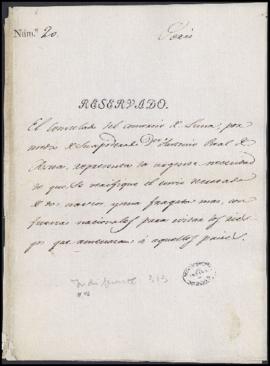 Núm.º 20.
RESERVADO.
El Consulado del comercio de Lima, por
medio de su apoderado Dn Antonio Real de
representa la urgente necesidad
de que se verifique el envio decretado
de dos navios y una fragata mas, con
fuerzas nacionales para evitar los ries-
gos que amenazan á aquellos paises.
313